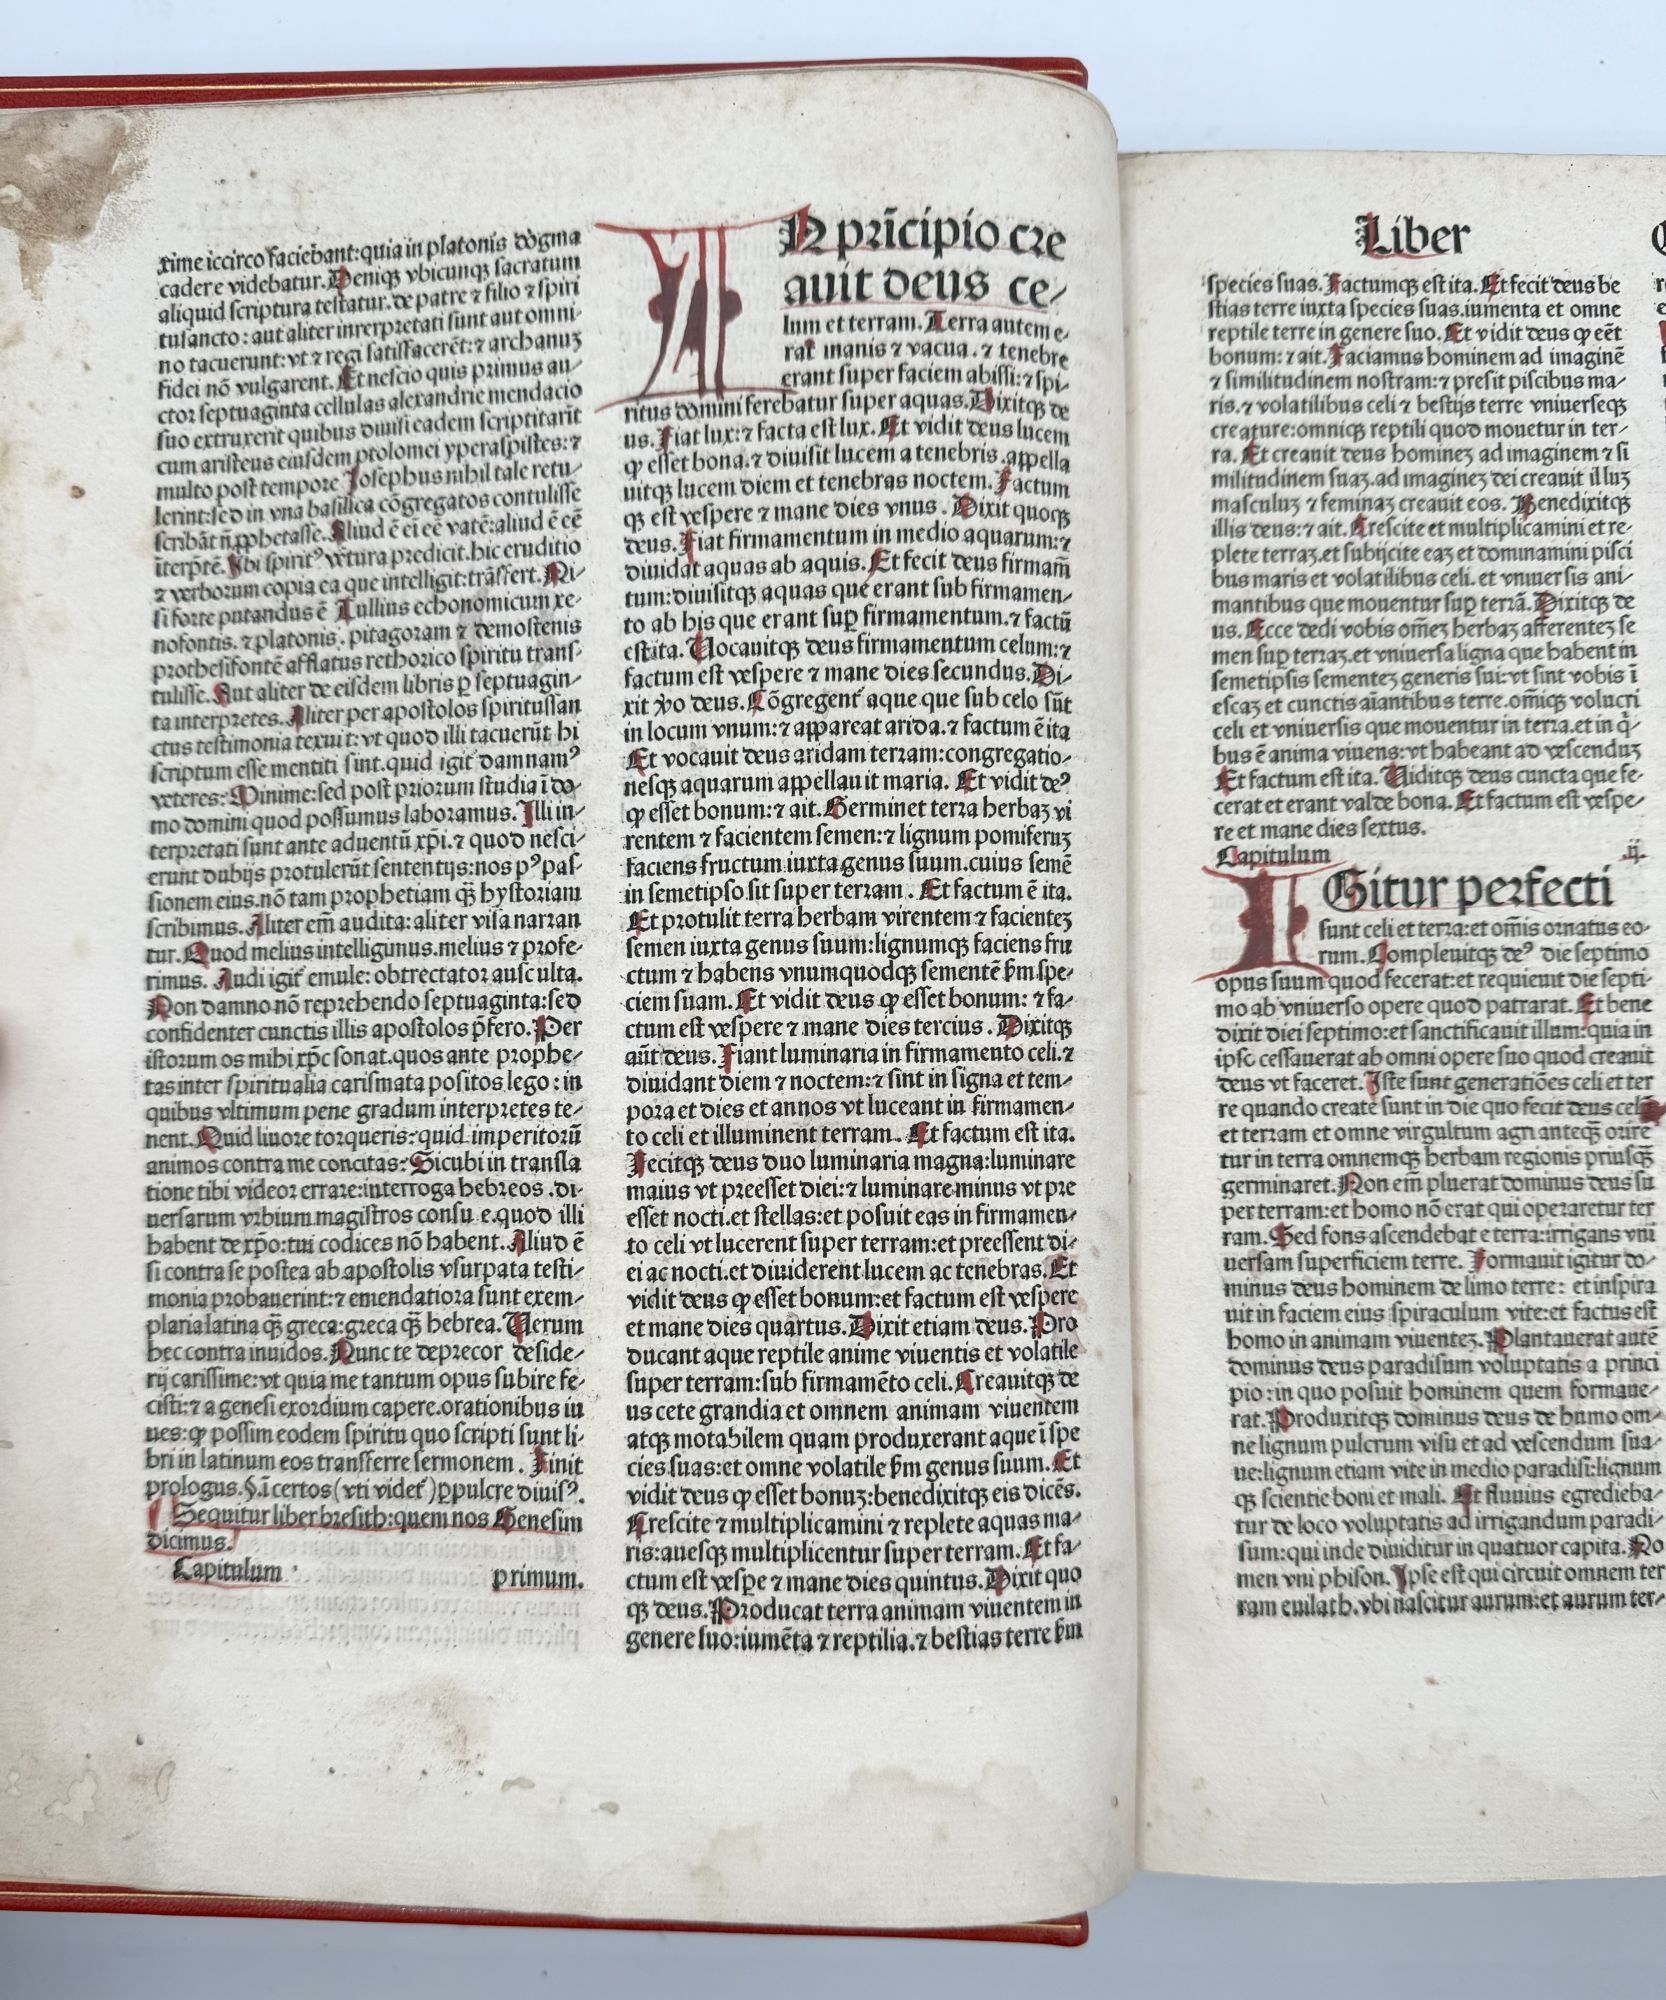 xime iccirco faciebāt: quia in platonis dogma
cadere videbatur. Deniqꝫ vbicunqꝫ sacratum
aliquid scriptura testatur. de patre ⁊ filio ⁊ spiri
tusancto: aut aliter inrerpretati sunt aut omni⸗
no tacuerunt: vt ⁊ regi satiffacerēt: ⁊ archanuꝫ
fidei nō vulgarent. Et nescio quis primus au⸗
ctor septuaginta cellulas alexandrie mendacio
suo extruxerit quibus diuisi eadem scriptitarīt
cum aristeus eiusdem ptolomei yperaspistes: ⁊
multo post tempore Iosephus nihil tale retu⸗
lerint: sed in vna basilica cōgregatos contulisse
scribāt nō ꝓphetasse. Aliud ē ei eē vatē: aliud ē eē
īterptē. Ibi spiritꝰ vētura predicit. hic eruditio
⁊ verborum copia ea que intelligit: trāsfert. Ni⸗
si forte putandus ē Tullius echonomicum xe⸗
nofontis. ⁊ platonis. pitagoram ⁊ demostenis
prothesifontē afflatus rethorico spiritu trans⸗
tulisse. Aut aliter de eisdem libris ꝑ septuagin⸗
ta interpretes. Aliter per apostolos spiritussan
ctus testimonia texuit: vt quod illi tacuerūt hi
scriptum esse mentiti sint. quid igit̄ damnamꝰ
veteres: Minime: sed post priorum studia ī do⸗
mo domini quod possumus laboramus. Illi in⸗
terpretati sunt ante aduentū xp̄i. ⁊ quod nesci⸗
erunt dubijs protulerūt sententijs: nos pꝰ pas⸗
sionem eius. nō tam prophetiam q̄ꝫ hystoriam
scribimus. Aliter em̄ audita: aliter visa narran
tur. Quod melius intelligimus. melius ⁊ profe⸗
rimus. Audi igit̄ emule: obtrectator ausculta.
Non damno nō reprehendo septuaginta: sed
confidenter cunctis illis apostolos p̄fero. Per
istorum os mihi xp̄c sonat. quos ante prophe⸗
tas inter spiritualia carismata positos lego: in
quibus vltimum pene gradum interpretes te⸗
nent. Quid liuore torqueris: quid imperitorū
animos contra me concitas: Sicubi in transla
tione tibi videor errare: interroga hebreos. di⸗
uersarum vrbium magistros consu e. quod illi
habent de xp̄o: tui codices nō habent. Aliud ē
si contra se postea ab apostolis vsurpata testi⸗
monia probauerint: ⁊ emendatiora sunt exem⸗
plaria latina q̄ꝫ greca: greca q̄ꝫ hebrea. Uerum
hec contra inuidos. Nunc te deprecor deside⸗
rij carissime: vt quia me tantum opus subire fe⸗
cisti: ⁊ a genesi exordium capere. orationibus iu
ues: ꝙ possim eodem spiritu quo scripti sunt li⸗
bri in latinum eos transferre sermonem. Finit
prologus. §. ī certos (vti videt̄) ꝑpulcre diuisꝰ.
Sequitur liber bresith: quem nos Genesim
dicimus.
Capitulum primum.
IN prīcipio cre
auit deus ce⸗
lum et terram. Terra autem e⸗
rat inanis ⁊ vacua. ⁊ tenebre
erant super faciem abissi: ⁊ spi⸗
ritus domini ferebatur super aquas. Dixitqꝫ de
us. Fiat lux: ⁊ facta est lux. Et vidit deus lucem
ꝙ esset bona. ⁊ diuisit lucem a tenebris. appella
uitqꝫ lucem diem et tenebras noctem. Factum
qꝫ est vespere ⁊ mane dies vnus. Dixit quoqꝫ
deus. Fiat firmamentum in medio aquarum: ⁊
diuidat aquas ab aquis. Et fecit deus firmam̄
tum: diuisitqꝫ aquas que erant sub firmamen⸗
to ab his que erant suꝑ firmamentum. ⁊ factū
est ita. Uocauitqꝫ deus firmamentum celum: ⁊
factum est vespere ⁊ mane dies secundus. Di⸗
xit v̊o deus. Cōgregent̄ aque que sub celo sūt
in locum vnum: ⁊ appareat arida. ⁊ factum ē ita
Et vocauit deus aridam terram: congregatio⸗
nesqꝫ aquarum appellauit maria. Et vidit deꝰ
ꝙ esset bonum: ⁊ ait. Germinet terra herbaꝫ vi
rentem ⁊ facientem semen: ⁊ lignum pomiferuꝫ
faciens fructum iuxta genus suum. cuius semē
in semetipso sit super terram. Et factum ē ita.
Et protulit terra herbam virentem ⁊ facienteꝫ
semen iuxta genus suum: lignumqꝫ faciens fru
ctum ⁊ habens vnumquodqꝫ sementē ẜm spe⸗
ciem suam. Et vidit deus ꝙ esset bonum: ⁊ fa⸗
ctum est vespere ⁊ mane dies tercius. Dixitqꝫ
aūt deus. Fiant luminaria in firmamento celi. ⁊
diuidant diem ⁊ noctem: ⁊ sint in signa et tem⸗
pora et dies et annos vt luceant in firmamen⸗
to celi et illuminent terram. Et factum est ita.
Fecitqꝫ deus duo luminaria magna: luminare
maius vt preesset diei: ⁊ luminare minus vt pre
esset nocti. et stellas: et posuit eas in firmamen⸗
to celi vt lucerent super terram: et preessent di⸗
ei ac nocti. et diuiderent lucem ac tenebras. Et
vidit deus ꝙ esset bonum: et factum est vespere
et mane dies quartus. Dixit etiam deus. Pro
ducant aque reptile anime viuentis et volatile
super terram: sub firmamēto celi. Creauitqꝫ de
us cete grandia et omnem animam viuentem
atqꝫ motabilem quam produxerant aque ī spe
cies suas: et omne volatile ẜm genus suum. Et
vidit deus ꝙ esset bonuꝫ: benedixitqꝫ eis dicēs.
Crescite ⁊ multiplicamini ⁊ replete aquas ma⸗
ris: auesqꝫ multiplicentur super terram. Et fa⸗
ctum est vesꝑe ⁊ mane dies quintus. Dixit quo
qꝫ deus. Producat terra animam viuentem in
genere suo: iumēta ⁊ reptilia. ⁊ bestias terre ẜm
Liber
species suas. Factumqꝫ est ita. Et fecit deus be
stias terre iuxta species suas. iumenta et omne
reptile terre in genere suo. Et vidit deus ꝙ eēt
bonum: ⁊ ait. Faciamus hominem ad imaginē
⁊ similitudinem nostram: ⁊ presit piscibus ma⸗
ris. ⁊ volatilibus celi ⁊ bestijs terre vniuerseqꝫ
creature: omniqꝫ reptili quod mouetur in ter⸗
ra. Et creauit deus homineꝫ ad imaginem ⁊ si
militudinem suaꝫ. ad imagineꝫ dei creauit illuꝫ
masculuꝫ ⁊ feminaꝫ creauit eos. Benedixitqꝫ
illis deus: ⁊ ait. Crescite et multiplicamini et re⸗
plete terraꝫ. et subijcite eaꝫ et dominamini pisci
bus maris et volatilibus celi. et vniuersis ani⸗
mantibus que mouentur suꝑ terrā. Dixitqꝫ de
us. Ecce dedi vobis om̄eꝫ herbaꝫ afferenteꝫ se
men suꝑ terraꝫ. et vniuersa ligna que habent in
semetipsis sementeꝫ generis sui: vt sint vobis ī
escaꝫ et cunctis aīantibus terre. om̄iqꝫ volucri
celi et vniuersis que mouentur in terra. et in q̄
bus ē anima viuens: vt habeant ad vescenduꝫ
Et factum est ita. Uiditqꝫ deus cuncta que fe⸗
cerat et erant valde bona. Et factum est vespe⸗
re et mane dies sextus.
Capitulum .ij.
IGitur perfecti
sunt celi et terra: et om̄is ornatus eo⸗
rum. Compleuitqꝫ deꝰ die septimo
opus suum quod fecerat: et requieuit die septi⸗
mo ab vniuerso opere quod patrarat. Et bene
dixit diei septimo: et sanctificauit illum: quia in
ipso cessauerat ab omni opere suo quod creauit
deus vt faceret. Iste sunt generatiōes celi et ter
re quando create sunt in die quo fecit deus celū
et terram et omne virgultum agri anteqꝫ orire
tur in terra omnemqꝫ herbam regionis priusqꝫ
germinaret. Non em̄ pluerat dominus deus su
per terram: et homo nō erat qui operaretur ter
ram. Sed fons ascendebat e terra: irrigans vni
uersam superficiem terre. Formauit igitur do⸗
minus deus hominem de limo terre: et inspira
uit in faciem eius spiraculum vite: et factus est
homo in animam viuenteꝫ. Plantauerat autē
dominus deus paradisum voluptatis a princi
pio: in quo posuit hominem quem formaue⸗
rat. Produxitqꝫ dominus deus de humo om⸗
ne lignum pulcrum visu et ad vescendum sua⸗
ue: lignum etiam vite in medio paradisi: lignum
qꝫ scientie boni et mali. Et fluuius egredieba⸗
tur de loco voluptatis ad irrigandum paradi⸗
sum: qui inde diuiditur in quatuor capita. No
men vni phison. Ipse est qui circuit omnem ter
ram euilath. vbi nascitur aurum: et aurum ter⸗